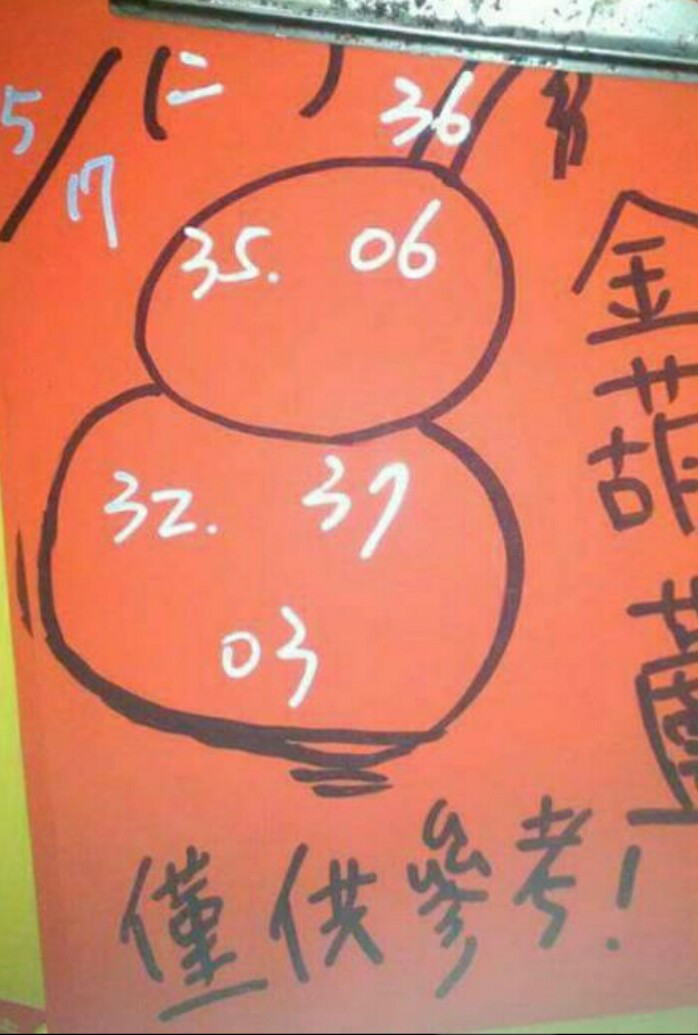 5/17 (二)
36
35. 06
32. 37
03
金葫蘆
僅供參考!